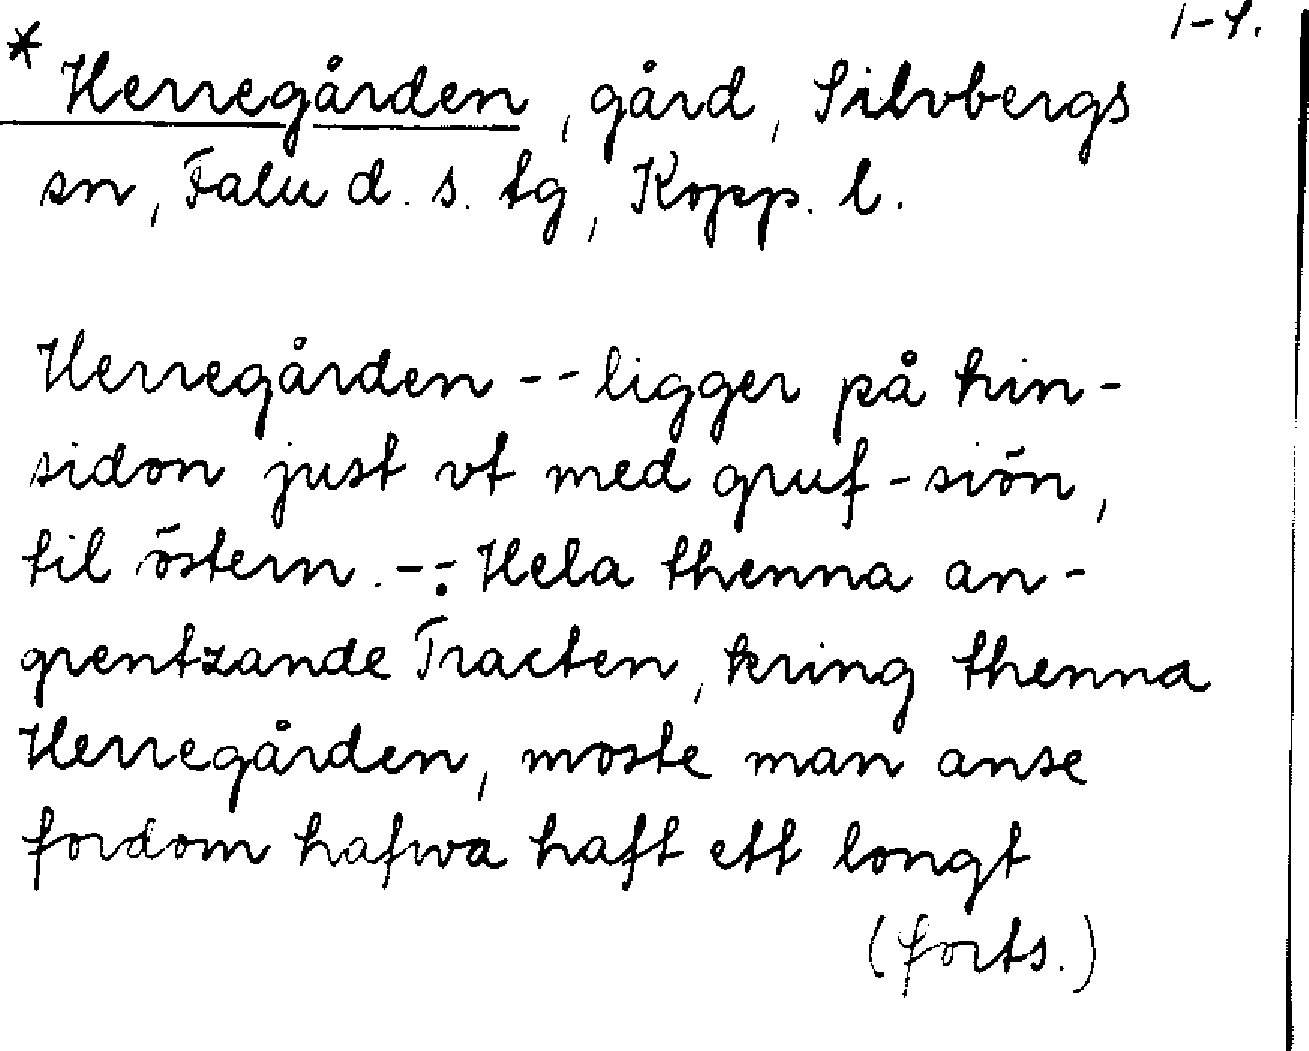 1-4.
* Herregården, gård, Silvbergs
sn, Falu d. s. tg, Kopp. l.
Herregården -- ligger på hin-
sidon just vt med gruf-siön,
til östern. --: Hela thenna an-
grentzande Tracten, kring thenna
Herregården, moste man anse
fordom hafwa haft ett longt
(forts.)